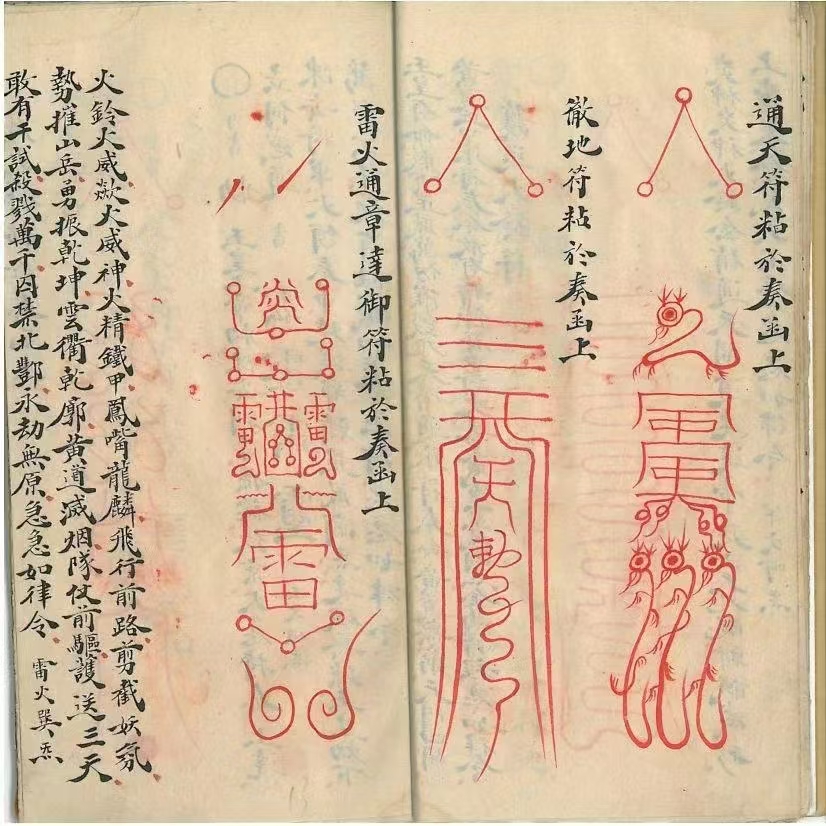 通天符粘於奏函上
徹地符粘於奏函上
雷火通章達御符粘於奏函上
火鈴火威歘火威神火精鐵甲鳳嘴龍麟飛行前路剪截妖氛
勢摧山岳勇振乾坤雲衢乾廓黃道滅烟隊仗前驅護送三天
敢有干試殺戮萬千囚禁北酆永劫無原急急如律令
雷火巽炁